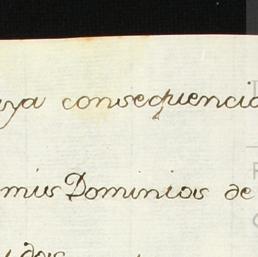 cuya consequencia
mis Dominios de